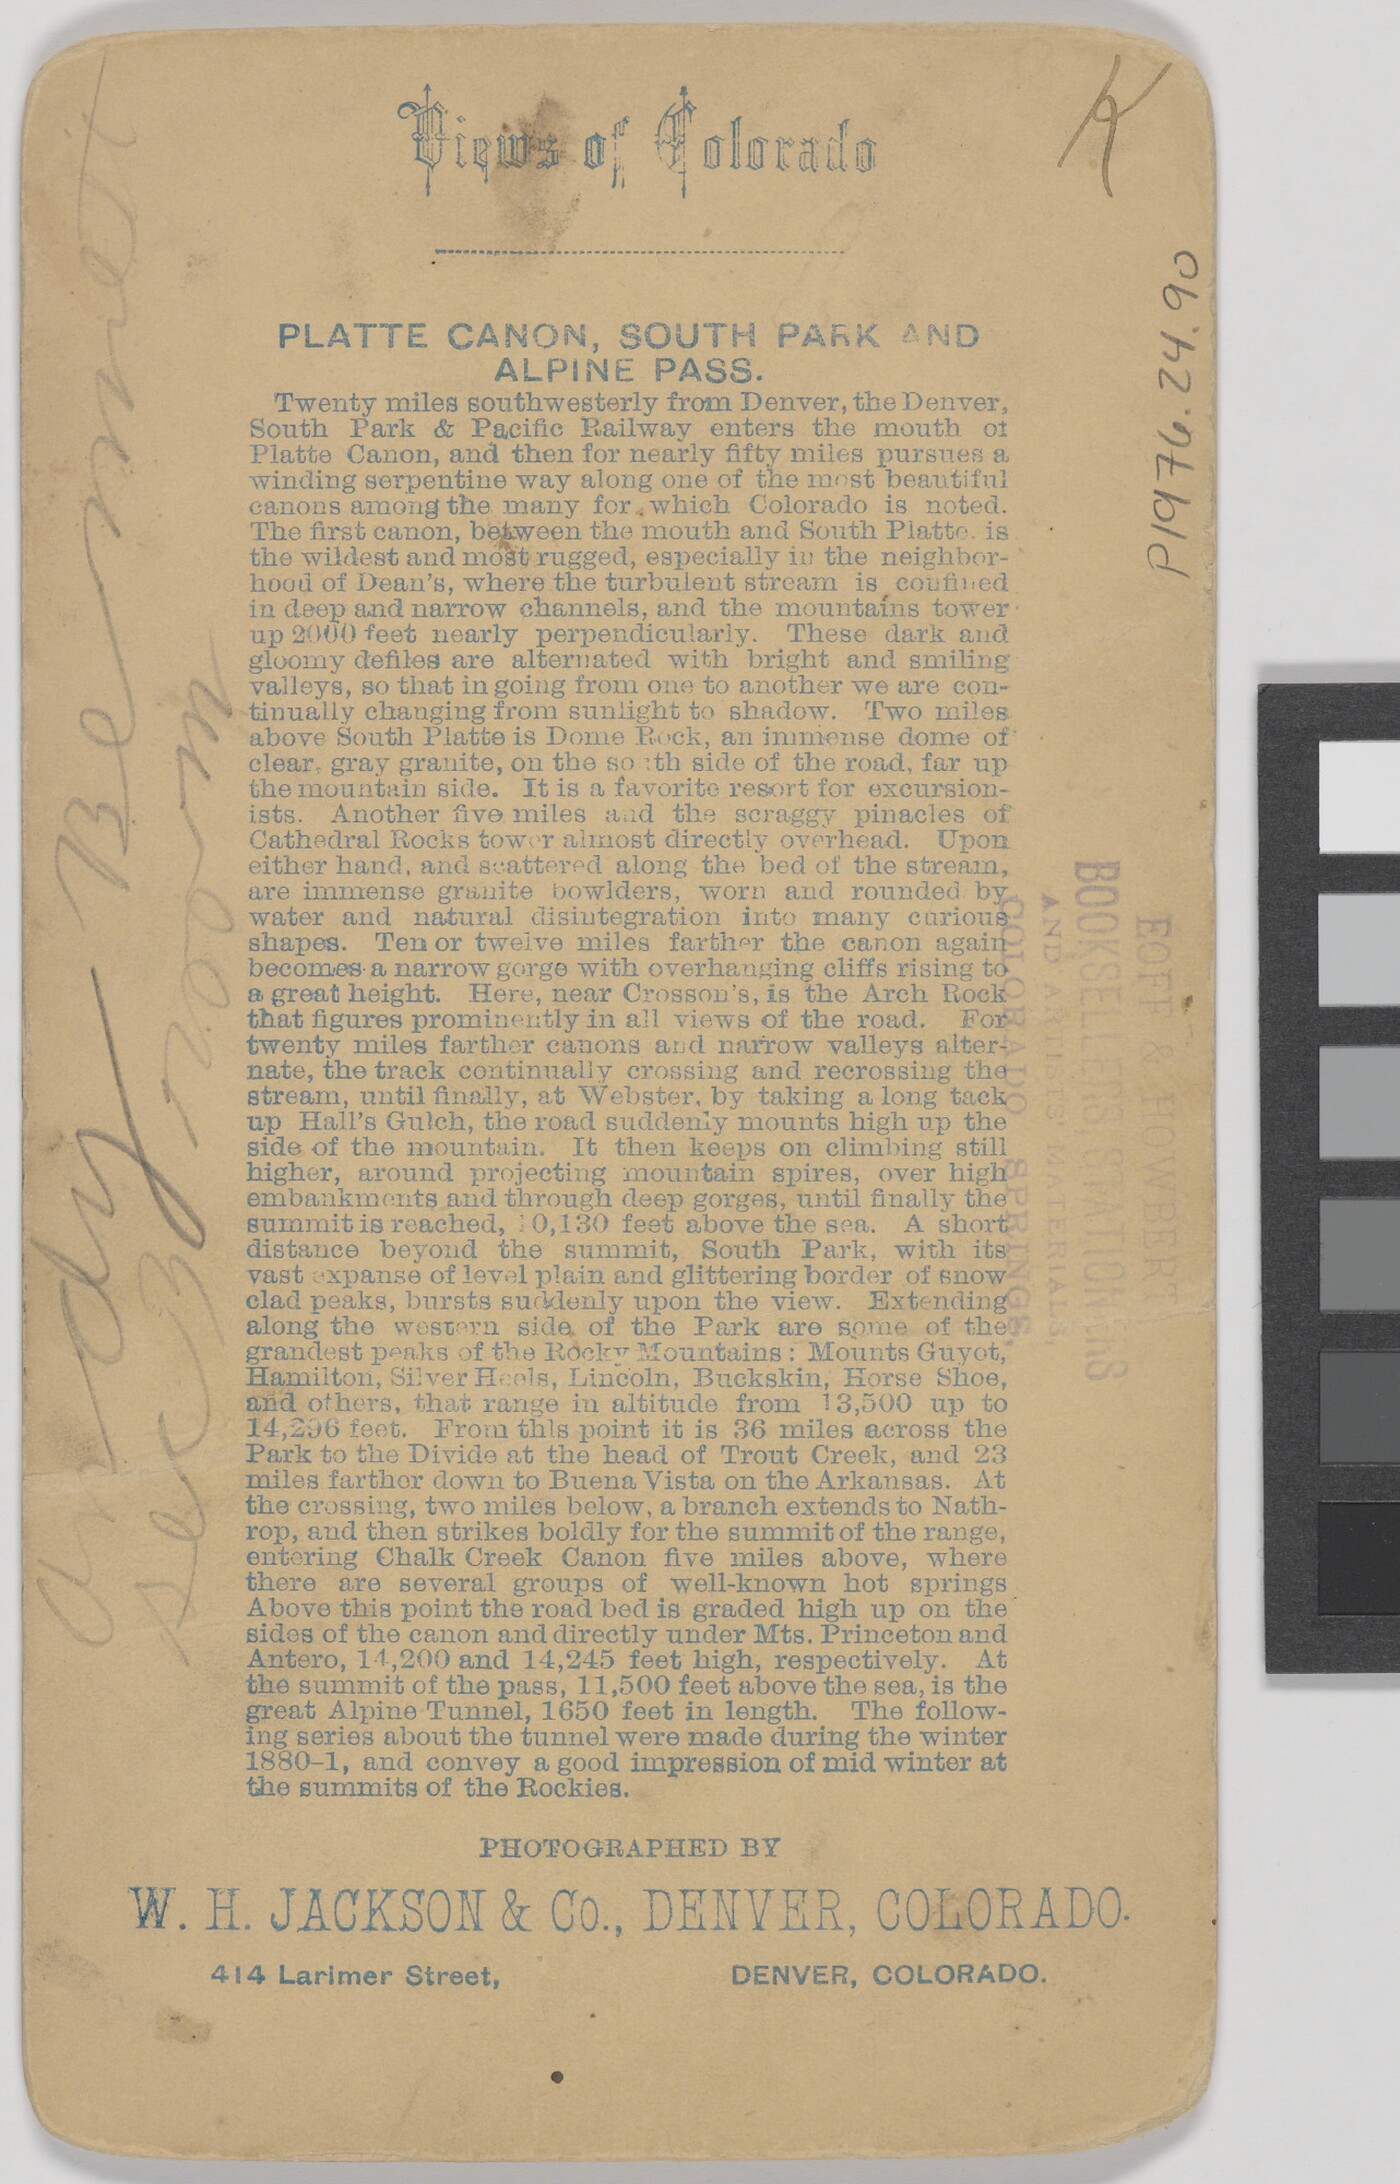 Views of Colorado
K
P1976.24.90
PLATTE CANON, SOUTH PARK AND
ALPINE PASS.
Twenty miles southwesterly from Denver, the Denver,
South Park & Pacific Railway enters the mouth of
Platte Canon, and then for nearly fifty miles pursues a
winding serpentine way along one of the most beautiful
canons among the many for which Colorado is noted.
The first canon, between the mouth and South Platte, is
the wildest and most rugged, especially in the neighbor-
hood of Dean's, where the turbulent stream is confined
in deep and narrow channels, and the mountains tower
up 2000 feet nearly perpendicularly. These dark and
gloomy defiles are alternated with bright and smiling
valleys, so that in going from one to another we are con-
tinually changing from sunlight to shadow. Two miles
above South Platte is Dome Rock, an immense dome of
clear, gray granite, on the south side of the road, far up
the mountain side. It is a favorite resort for excursion-
ists. Another five miles and the scraggy pinacles of
Cathedral Rocks tower almost directly overhead. Upon
either hand, and scattered along the bed of the stream,
are immense granite bowlders, worn and rounded by
water and natural disintegration into many curious
shapes. Ten or twelve miles farther the canon again
becomes a narrow gorge with overhanging cliffs rising to
a great height. Here, near Crosson's, is the Arch Rock
that figures prominently in all views of the road. For
twenty miles farther canons and narrow valleys alter-
nate, the track continually crossing and recrossing the
stream, until finally, at Webster, by taking a long tack
up Hall's Gulch, the road suddenly mounts high up the
side of the mountain. It then keeps on climbing still
higher, around projecting mountain spires, over high
embankments and through deep gorges, until finally the
summit is reached, 10,130 feet above the sea. A short
distance beyond the summit, South Park, with its
vast expanse of level plain and glittering border of snow
clad peaks, bursts suddenly upon the view. Extending
along the western side of the Park are some of the
grandest peaks of the Rocky Mountains: Mounts Guyot,
Hamilton, Silver Heels, Lincoln, Buckskin, Horse Shoe,
and others, that range in altitude from 13,500 up to
14,296 feet. From this point it is 36 miles across the
Park to the Divide at the head of Trout Creek, and 23
miles farther down to Buena Vista on the Arkansas. At
the crossing, two miles below, a branch extends to Nath-
rop, and then strikes boldly for the summit of the range,
entering Chalk Creek Canon five miles above, where
there are several groups of well-known hot springs
Above this point the road bed is graded high up on the
sides of the canon and directly under Mts. Princeton and
Antero, 14,200 and 14,245 feet high, respectively. At
the summit of the pass, 11,500 feet above the sea, is the
great Alpine Tunnel, 1650 feet in length. The follow-
ing series about the tunnel were made during the winter
1880-1, and convey a good impression of mid winter at
the summits of the Rockies.
PHOTOGRAPHED BY
W. H. JACKSON & Co., DENVER, COLORADO.
414 Larimer Street, DENVER, COLORADO.
EOFF & HOWBERT
BOOKSELLERS, STATIONERS
AND ARTISTS' MATERIALS,
COLORADO SPRINGS.